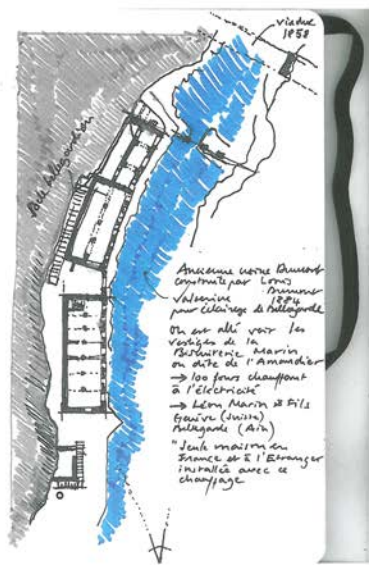 viaduc
1858
Ancienne usine Dumont
construite par Louis
Dumont
Valserine
1884
pour éclairage de Bellegarde
On est allé voir les
vestiges de la
Biscuiterie Marin
ou dite de l'Amandier
→ 100 fours chauffant
à l'électricité
→ Léon Marin & Fils
Genève (Suisse)
Bellegarde (Ain)
"Seule maison en
France et à l'Etranger
installée avec ce
chauffage